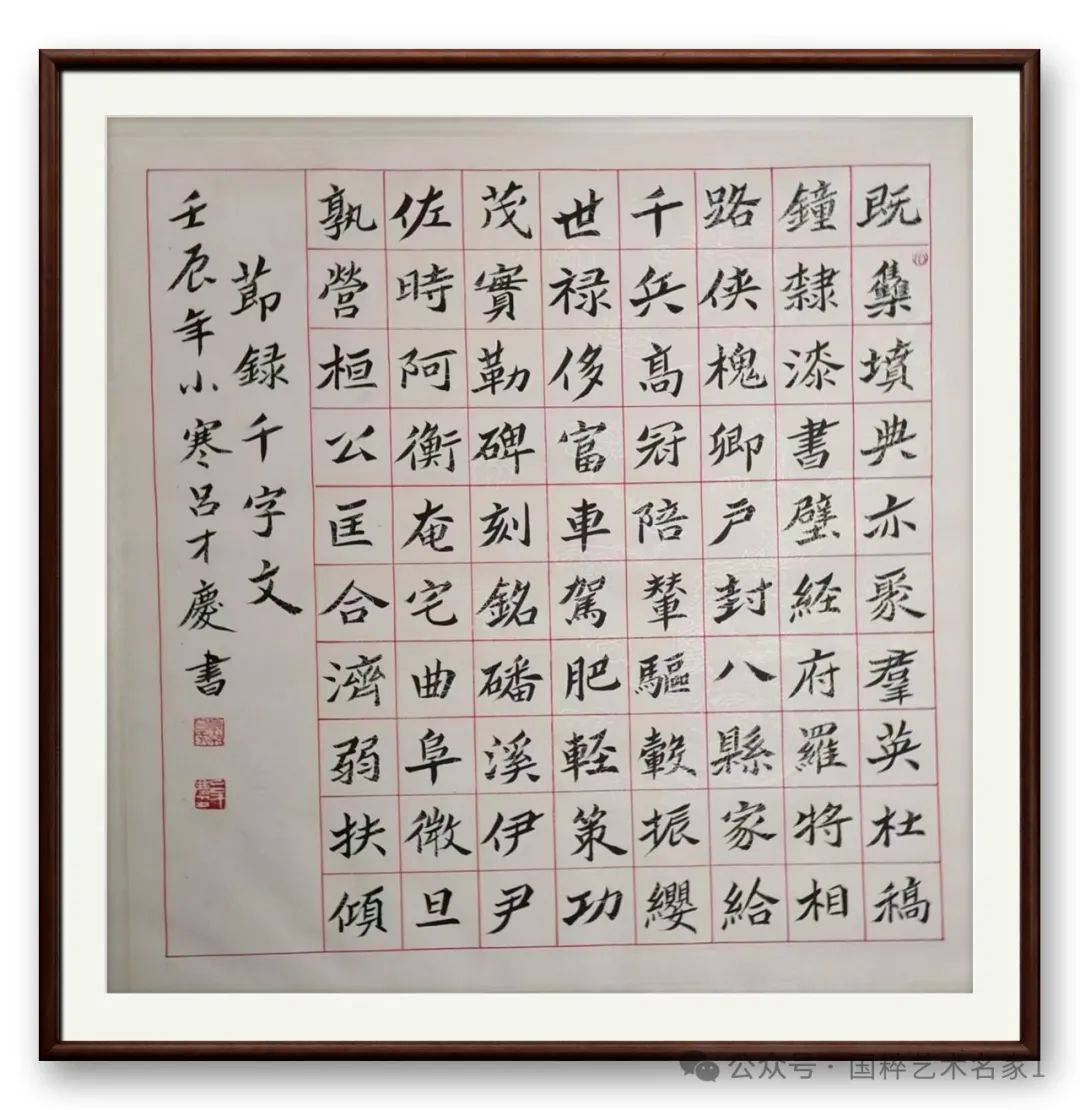 既集墳典亦聚羣英杜稿
鐘隸漆書壁経府羅將相
路俠槐卿戶封八縣家給
千兵高冠陪輦驅轂振纓
世禄侈富車駕肥軽策功
茂實勒碑刻銘磻溪伊尹
佐時阿衡奄宅曲阜微旦
孰營桓公匡合濟弱扶傾
節録千字文
壬辰年小寒呂才慶書
公众号·国粹艺术名家1